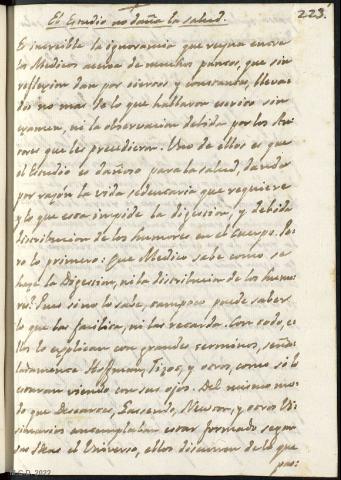 223.
El Estudio no daña la salud.
Es increible la ignorancia que reyna entre
los Medicos acerca de muchos puntos, que sin
reflexion dan por ciertos y constantes, lleva-
dos no mas de lo que hallaron escrito sin
examen, ni la observacion debida por los Au-
tores que les precedieron. Uno de ellos es que
el Estudio es dañoso para la salud, dando
por razon la vida sedentaria que requiere
y lo que esta impide la digestion, y debida
distribucion de los humores en el Cuerpo. Pe-
ro lo primero: Que Medico sabe como se
hace la Digestion, ni la distribucion de los humo-
res? Pues si no lo sabe, tampoco puede saber
lo que las facilita, ni las retarda. Con todo, e-
llos lo explican con grandes terminos, seña-
ladamente Hoffman, Tizot, y otros, como si lo
estaran viendo con sus ojos. Del mismo mo-
do que Descartes, Gasendo, Newton, y otros Si-
stematicos contemplaban estar formado segun
sus Ideas el Universo, ellos discurren de lo que
pas-